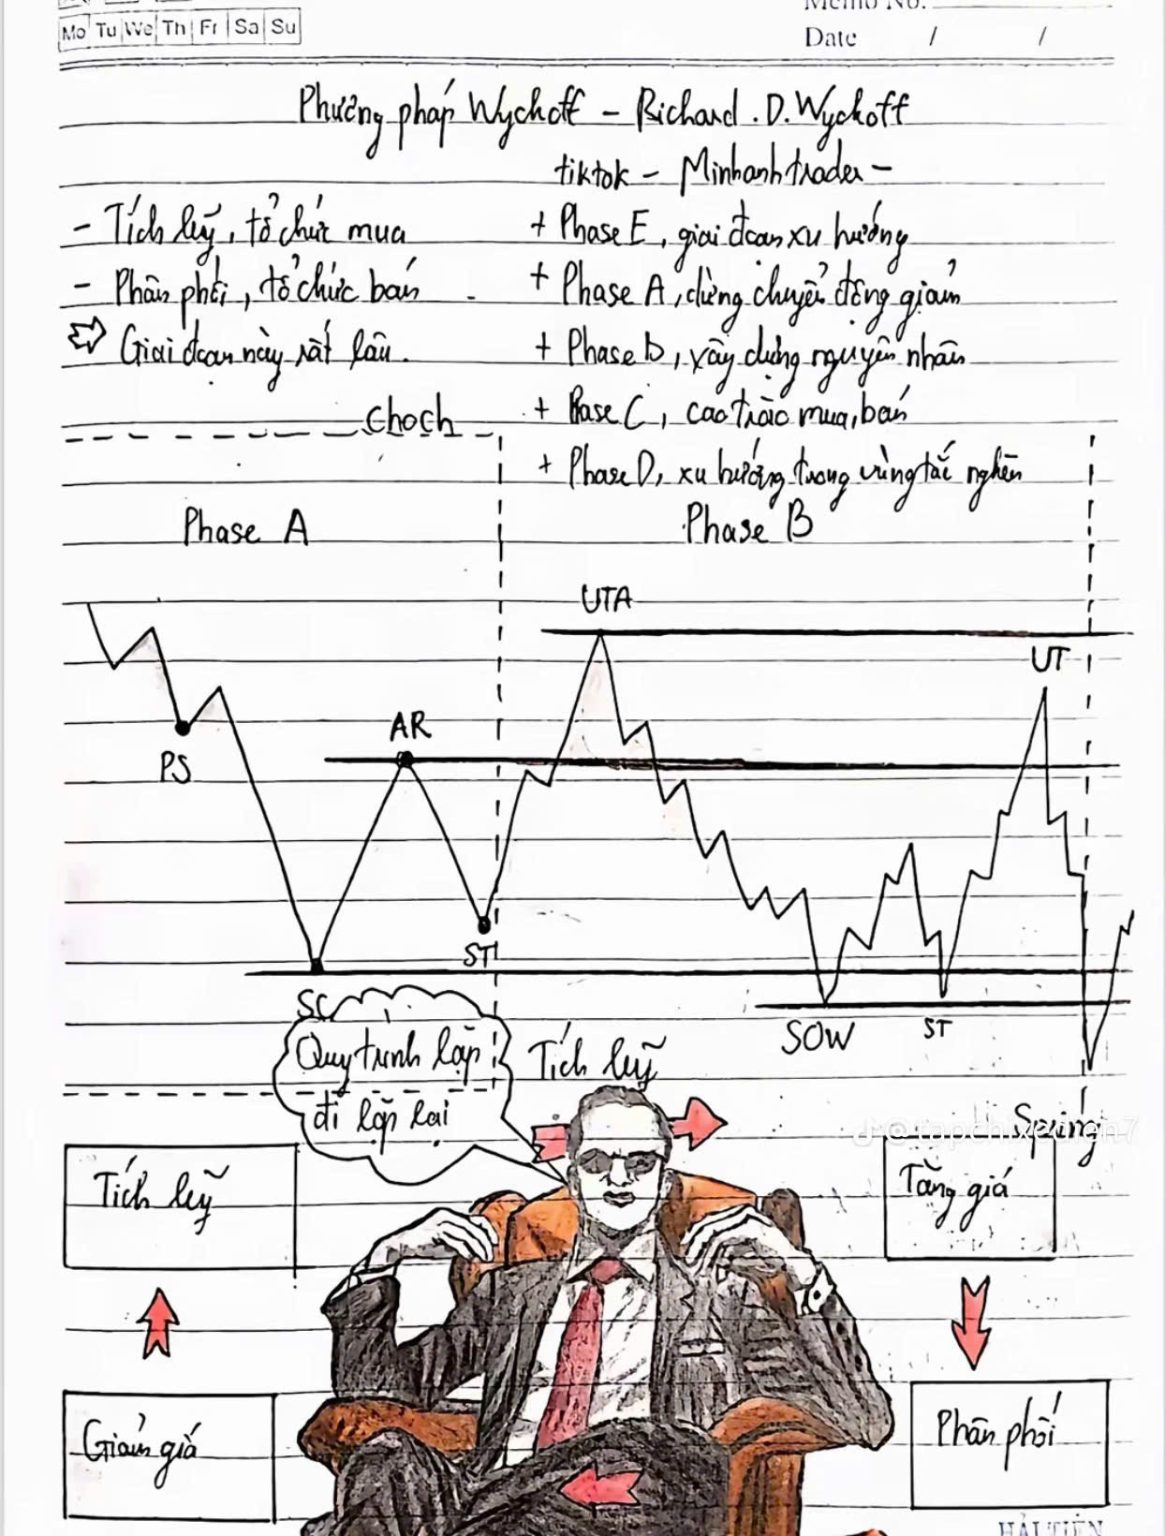 Mo Tu We Th Fr Sa Su
Memo No.
Date / /
Phương pháp Wyckoff - Richard . D. Wyckoff
tiktok - Minhanhtrader -
- Tích luỹ, tổ chức mua
- Phân phối, tổ chức bán
⇨ Giai đoạn này rất lâu.
+ Phase E, giai đoạn xu hướng
+ Phase A, dừng chuyển động giảm
+ Phase b, xây dựng nguyên nhân
+ Pase C, cao trào mua, bán
+ Phase D, xu hướng trong vùng tắc nghẽn
choch
Phase A
Phase B
UTA
UT
AR
PS
ST
SC
SOW
ST
Spring
Quy trình lặp
đi lặp lại
Tích luỹ
Tích luỹ
Tăng giá
Giảm giá
Phân phối
HẢI TIẾN